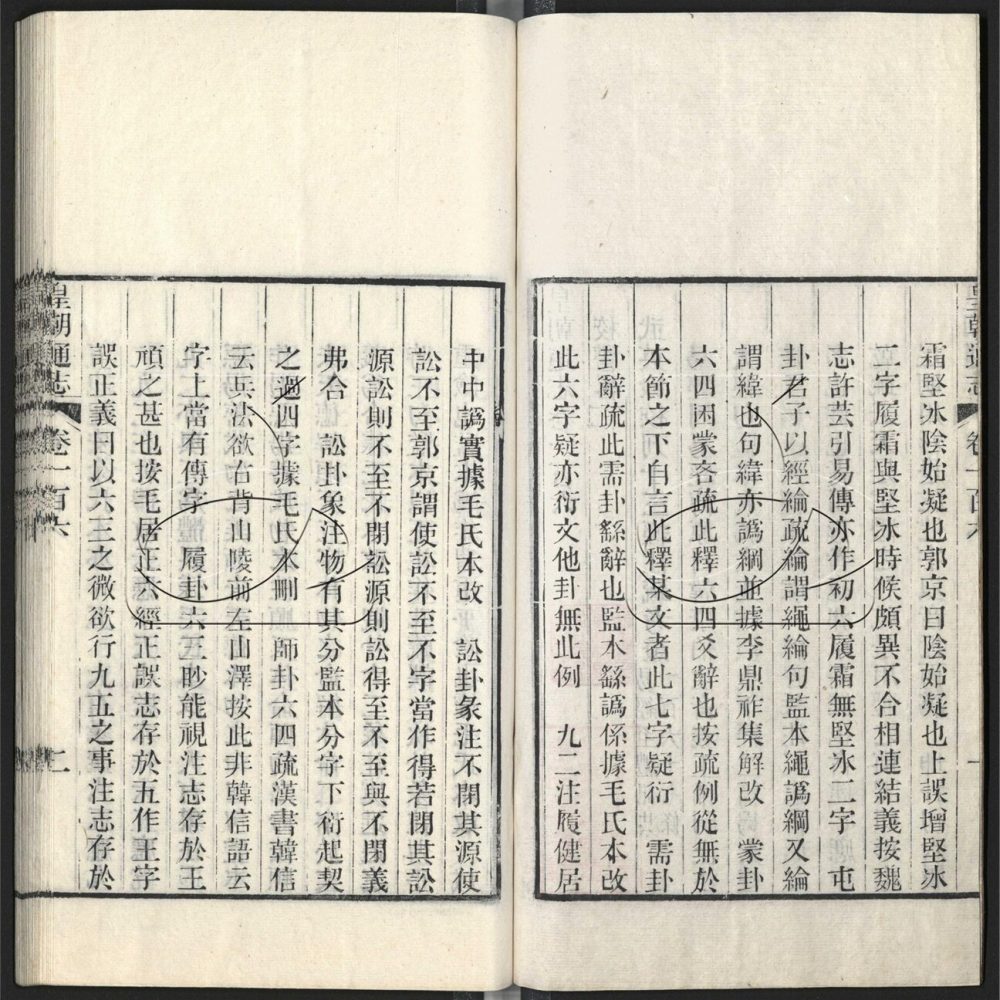 皇朝通志 卷一百六 一
霜堅冰陰始凝也郭京曰陰始凝也上誤增堅冰
二字履霜與堅冰時候頗異不合相連結義按魏
志許芸引易傳亦作初六履霜無堅冰二字 屯
卦君子以經綸疏綸謂繩綸句監本繩譌綱又綸
謂緯也句緯亦譌綱並據李鼎祚集解改 蒙卦
六四困蒙吝疏此釋六四爻辭也按疏例從無於
本節之下自言此釋某文者此七字疑衍 需卦
卦辭疏此需卦繇辭也監本繇譌係據毛氏本改
此六字疑亦衍文他卦無此例 九二注履健居
中中譌實據毛氏本改 訟卦彖注不閉其源使
訟不至郭京謂使訟不至不字當作得若閉其訟
源訟則不至不閉訟源則訟得至不至與不閉義
弗合 訟卦象注物有其分監本分字下衍起契
之過四字據毛氏本刪 師卦六四疏漢書韓信
云兵法欲右背山陵前左山澤按此非韓信語云
字上當有傳字 履卦六三眇能視注志存於王
頑之甚也按毛居正六經正誤志存於五作王字
誤正義曰以六三之微欲行九五之事注志存於
皇朝通志 卷一百六